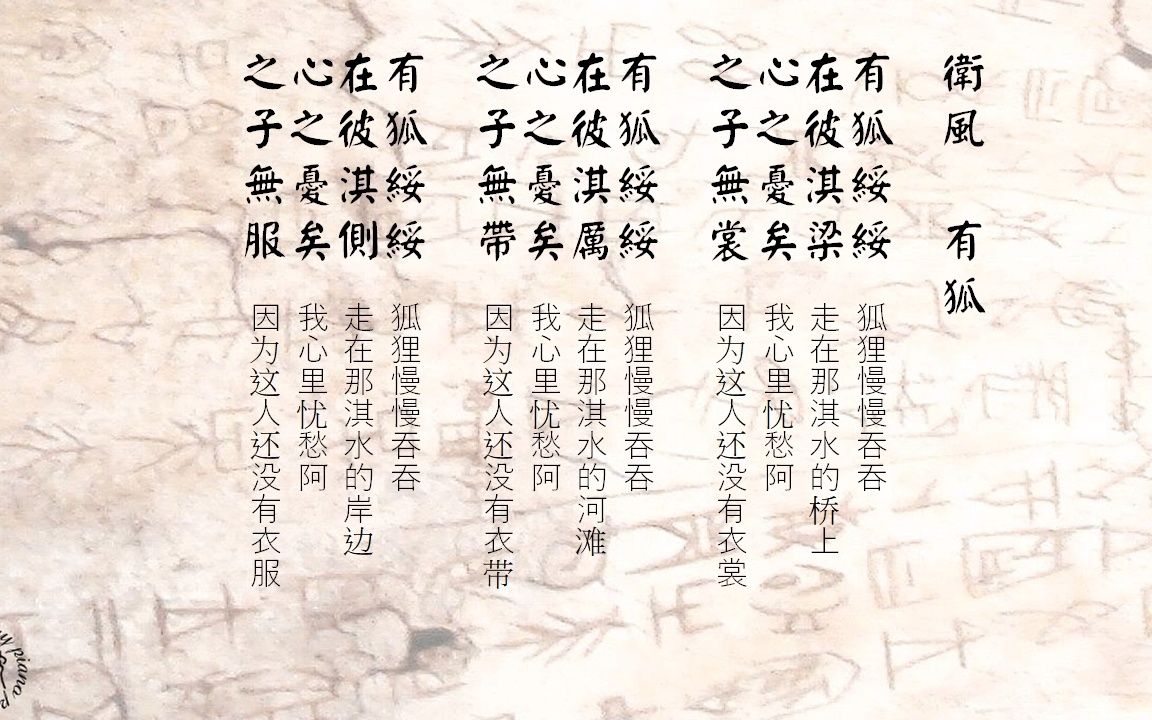 衛風 有狐
有狐綏綏 狐狸慢慢吞吞
在彼淇梁 走在那淇水的桥上
心之憂矣 我心里忧愁阿
之子無裳 因为这人还没有衣裳
有狐綏綏 狐狸慢慢吞吞
在彼淇厲 走在那淇水的河滩
心之憂矣 我心里忧愁阿
之子無帶 因为这人还没有衣带
有狐綏綏 狐狸慢慢吞吞
在彼淇側 走在那淇水的岸边
心之憂矣 我心里忧愁阿
之子無服 因为这人还没有衣服
piano